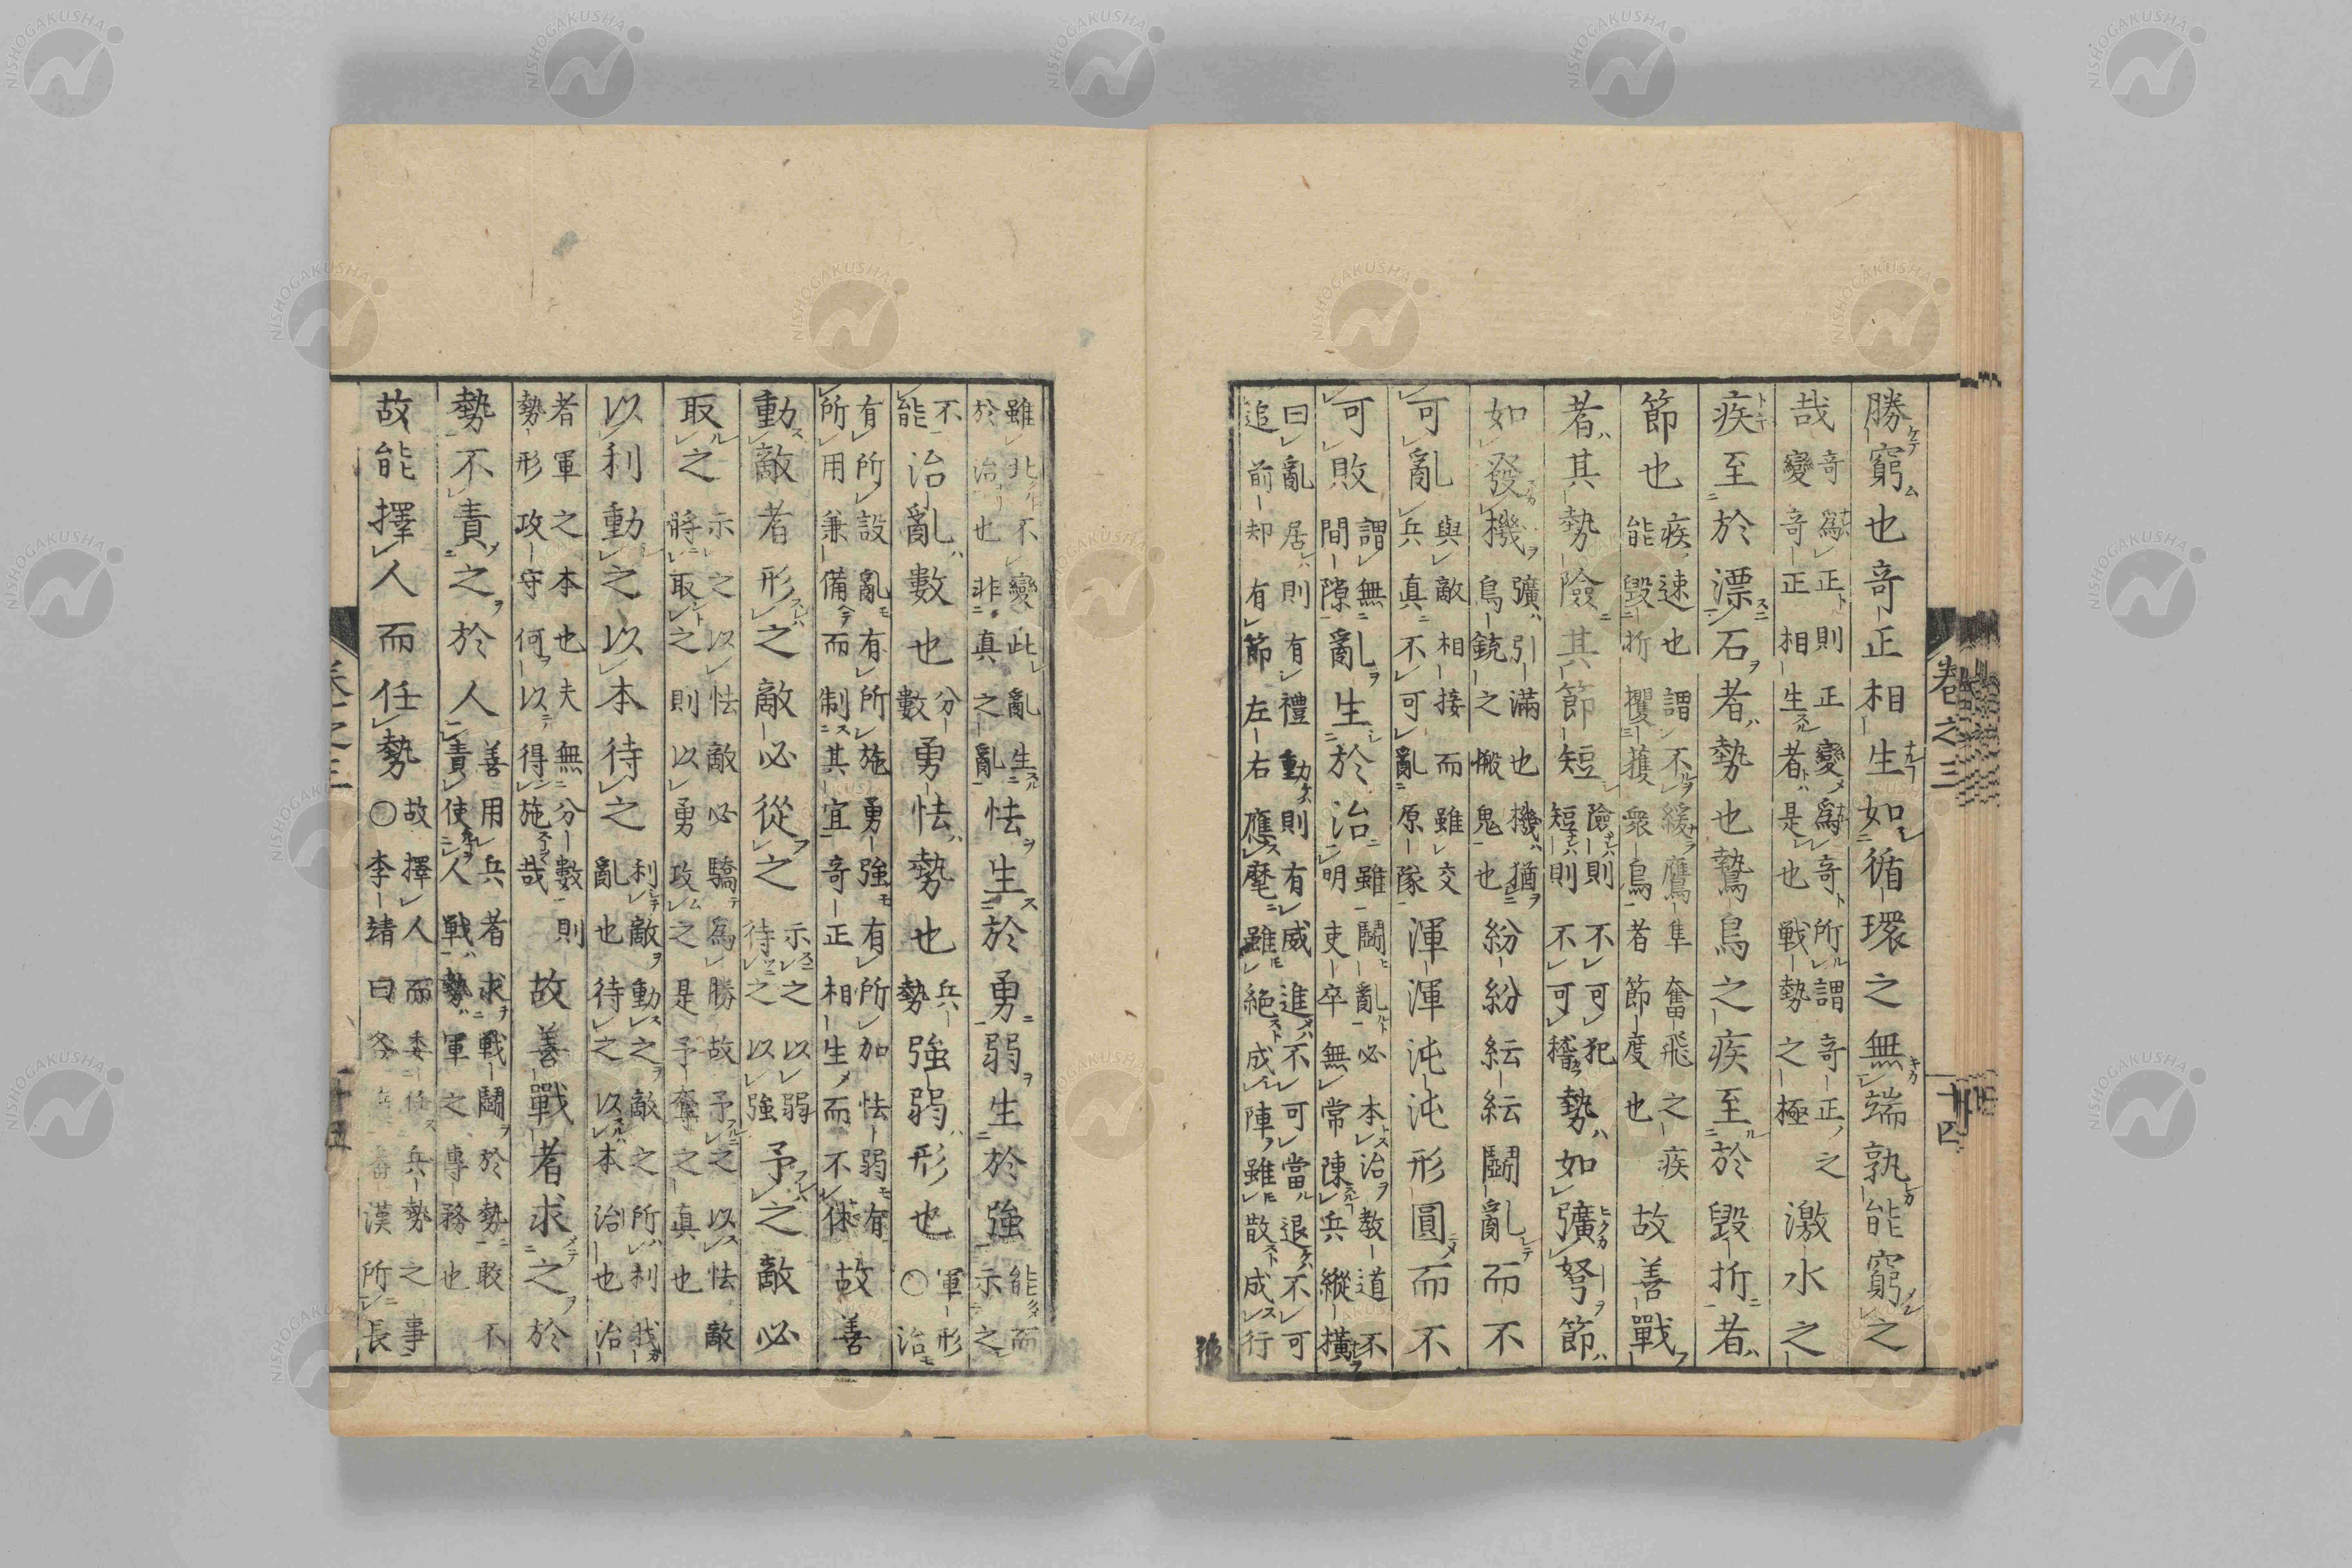 卷之三
十四
勝窮也奇正相生如循環之無端孰能窮之
哉奇爲正則正變爲奇所謂奇正之變奇正相生者是也戰勢之極激水之
疾至於漂石者勢也鷙鳥之疾至於毀折者
節也疾速也謂不緩鷹隼奮飛之疾能毀折攫獲衆鳥者節度也故善戰
者其勢險其節短險則不可犯短則不可稽勢如彍弩節
如發機彍引滿也機猶鳥銃之搬鬼也紛紛紜紜鬪亂而不
可亂與敵相接而雖交兵真不可亂原隊渾渾沌沌形圓而不
可敗謂無間隙亂生於治雖鬪亂必本治教道不明吏卒無常陳兵縱橫
曰亂居則有禮動則有威進不可當退不可追前却有節左右應麾雖絕成陣雖散成行
雖北不變此亂生於治也非真之亂怯生於勇弱生於強能而示之
不能治亂數也分數勇怯勢也兵勢強弱形也軍形○治
有所設亂有所施勇強有所加怯弱有所用兼備而制其宜奇正相生而不休故善
動敵者形之敵必從之示之以弱待之以強予之敵必
取之示之以怯敵必驕爲勝故予之以怯敵將取之則以勇攻之是予奪之真也
以利動之以本待之利敵動之敵之所利我亂也待之以本治也治
者軍之本也夫無分數則勢形攻守何以得施哉故善戰者求之於
勢不責之於人善用兵者求戰鬪於勢敢不責使人戰勢軍之專務也
故能擇人而任勢故擇人而委任兵勢之事○李靖曰各漢所長
卷之三
十五